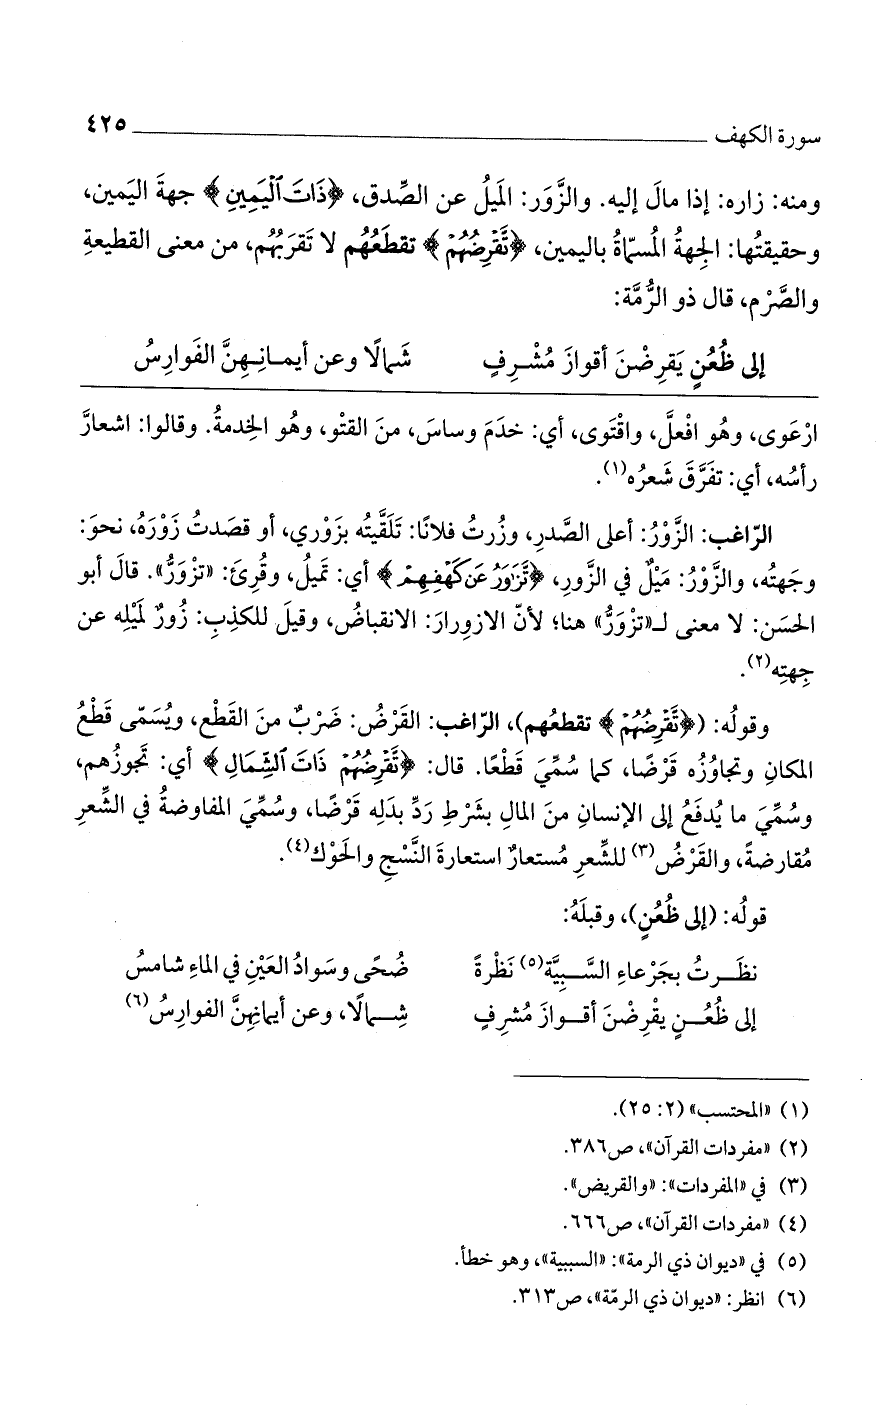 سورة الكهف ٤٢٥
ومنه: زاره: إذا مالَ إليه. والزَّوَر: المَيلُ عن الصِّدق، ﴿ذَاتَ ٱلْيَمِينِ﴾ جهةَ اليَمين،
وحقيقتُها: الجِهةُ المُسمّاةُ باليمين، ﴿تَّقْرِضُهُمْ﴾ تقطَعُهُم لا تَقرَبُهُم، من معنى القطيعةِ
والصَّرْم، قال ذو الرُّمَّة:
إلى ظُعُنٍ يَقرِضْنَ أقوازَ مُشْرِفٍ شَمالًا وعن أيمانِهِنَّ الفَوارِسُ
ارْعَوى، وهُو افْعلَّ، واقْتَوى، أي: خدَمَ وساسَ، منَ القتْو، وهُو الخِدمةُ. وقالوا: اشعارَّ
رأسُه، أي: تفَرَّقَ شَعرُه(١).
الرّاغب: الزَّوْرُ: أعلى الصَّدرِ، وزُرتُ فلانًا: تَلَقَّيتُه بزَوْري، أو قصَدتُ زَوْرَهُ، نحوَ:
وجَهتُه، والزَّوْرُ: مَيْلٌ في الزَّورِ، ﴿تَّزَٰوَرُ عَن كَهْفِهِمْ﴾ أي: تميلُ، وقُرِئَ: «تزْوَرُّ». قالَ أبو
الحسَن: لا معنى لـ«تزْوَرُّ» هنا؛ لأنّ الازوِرارَ: الانقباضُ، وقيلَ للكذِبِ: زُورٌ لمَيْلِه عن
جِهتِه(٢).
وقولُه: (﴿تَّقْرِضُهُمْ﴾ تقطعُهم)، الرّاغب: القَرْضُ: ضَرْبٌ منَ القَطْع، ويُسَمّى قَطْعُ
المكانِ وتجاوُزُه قَرْضًا، كما سُمِّيَ قَطْعًا. قال: ﴿تَّقْرِضُهُمْ ذَاتَ ٱلشِّمَالِ﴾ أي: تجوزُهم،
وسُمِّيَ ما يُدفَعُ إلى الإنسانِ منَ المالِ بشَرْطِ رَدِّ بدَلِه قَرْضًا، وسُمِّيَ المفاوضةُ في الشِّعرِ
مُقارضةً، والقَرْضُ(٣) للشِّعرِ مُستعارٌ استعارةَ النَّسْجِ والحَوْك(٤).
قولُه: (إلى ظُعُنٍ)، وقبلَهُ:
نظَرتُ بجَرْعاءِ السَّبِيَّة(٥) نَظْرةً ضُحًى وسَوادُ العَيْنِ في الماءِ شامسُ
إلى ظُعُنٍ يقْرِضْنَ أقوازَ مُشرِفٍ شِمالًا، وعن أيمانِهنَّ الفوارِسُ(٦)
(١) «المحتسب» (٢: ٢٥).
(٢) «مفردات القرآن»، ص٣٨٦.
(٣) في «المفردات»: «والقريض».
(٤) «مفردات القرآن»، ص٦٦٦.
(٥) في «ديوان ذي الرمة»: «السببية»، وهو خطأ.
(٦) انظر: «ديوان ذي الرمّة»، ص٣١٣.